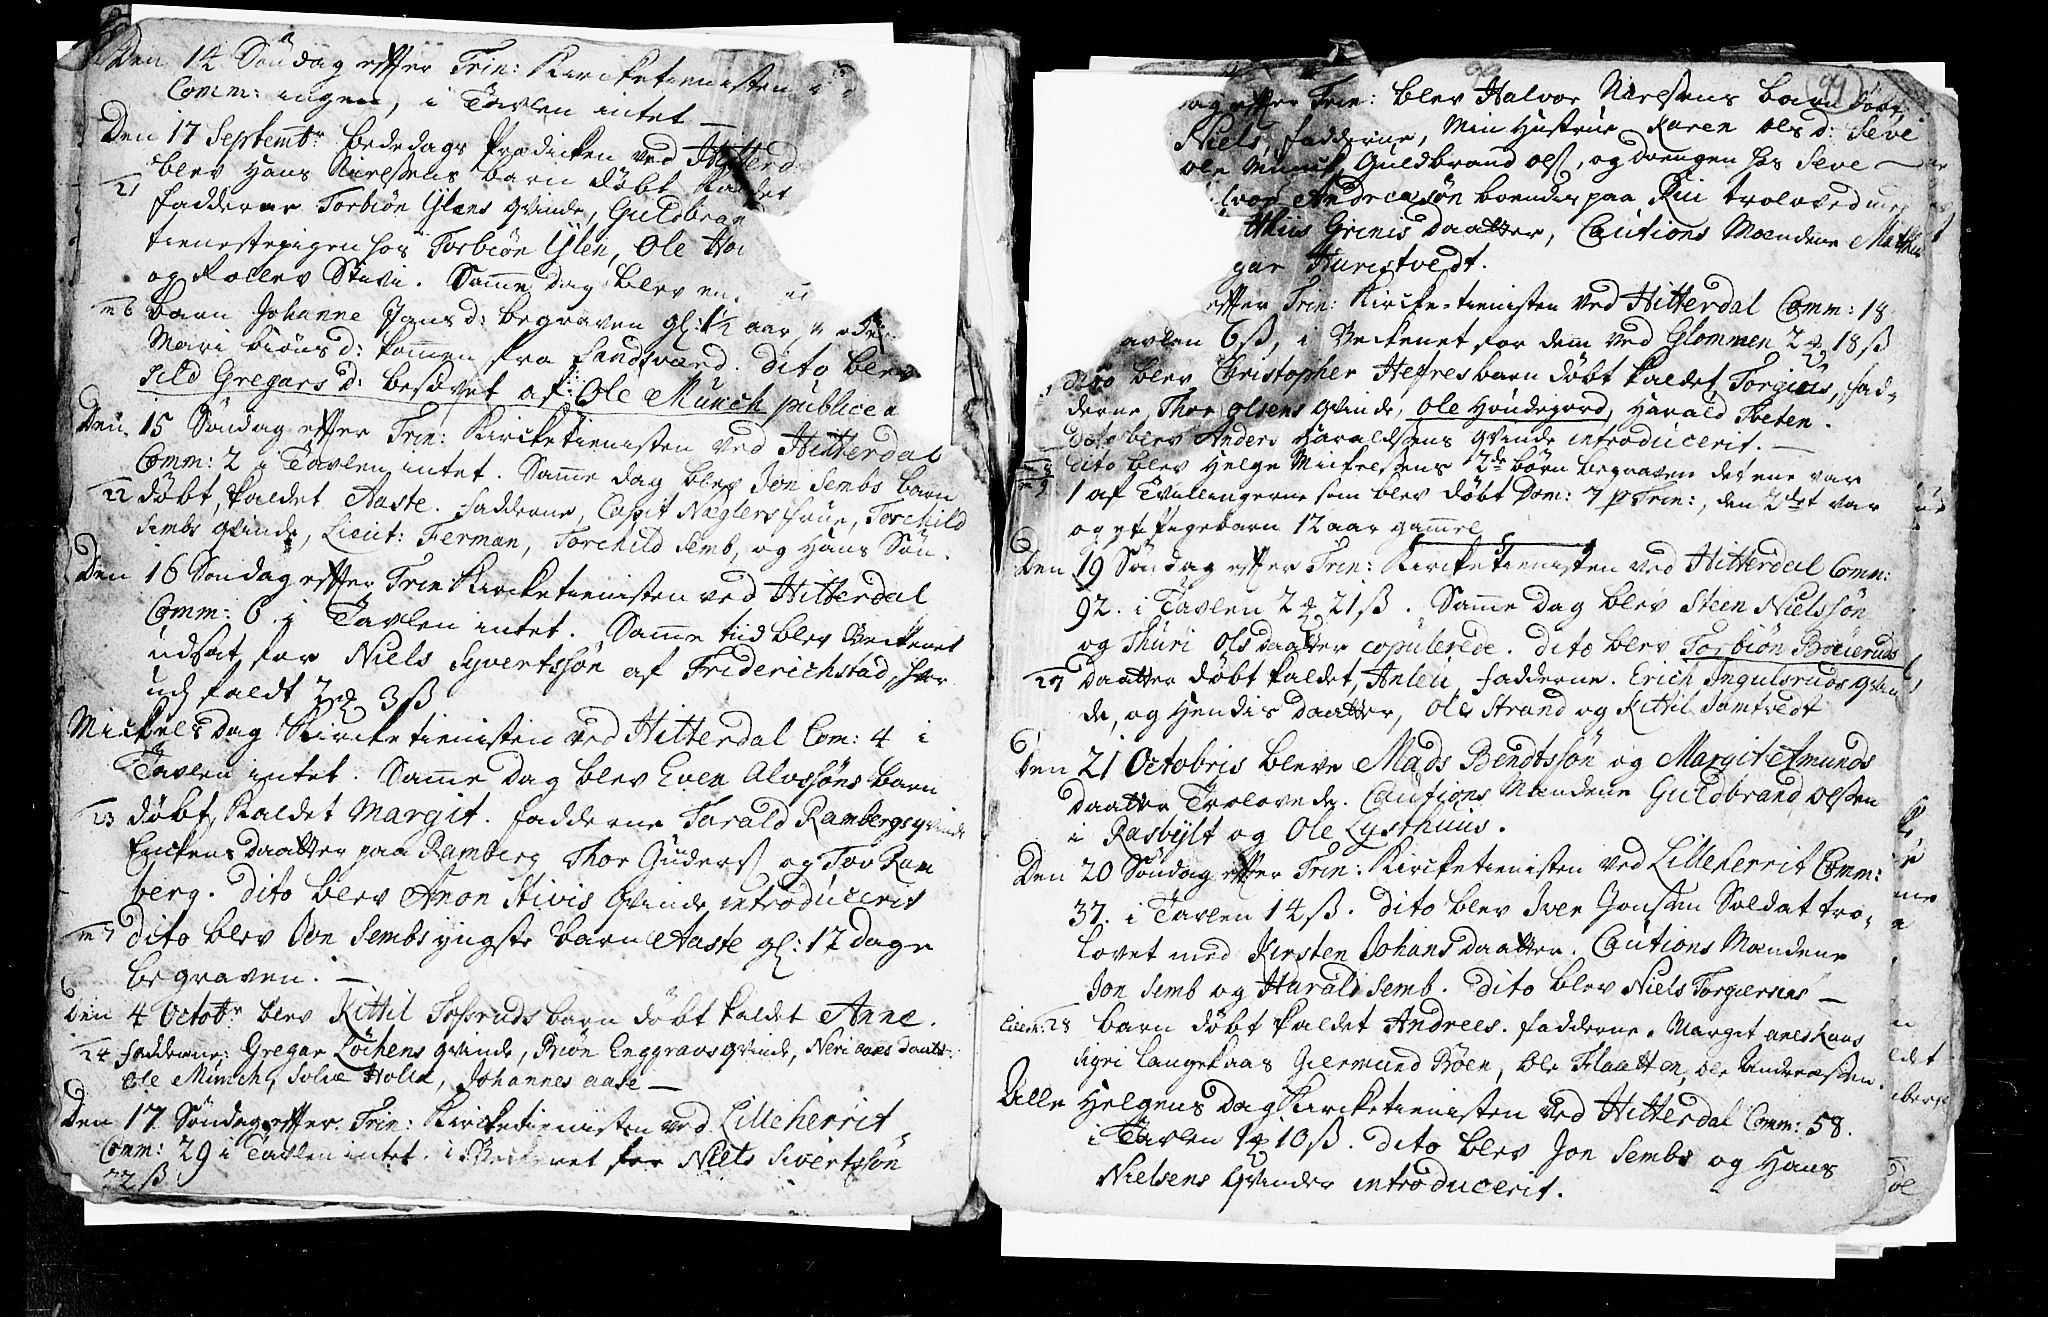 Den 14 Søndag effter Trin: Kircketienisten
Comm: ingen, i Tavlen intet —
Den 17 Septembr bededags Prædicken ved Hitterd
blev Hans Nielsens barn døbt kaldet
21 fadderne Torbiøn Ylens qvinde, Guldbran
tienestepigen hos Torbiøn Ylen, Ole Ho
og Rollev Stivi. Samme dag blev en
m 6 barn Johanne Jans d: begraven gl: 1½ aar
Mari Biøns d: kommen fra Sandsværd. dito blev
sild Gregars d: besovet af Ole Munch publice
Den 15 Søndag effter Trin: Kircketienisten ved Hitterdal
Comm: 2 i Tavlen intet. Samme dag blev Jon Sembs barn
22 døbt, kaldet Aaste. fadderne, Capit Næglers frue, Torchild
Sembs qvinde, Lieut: Ferman, Torchild Semb, og Hans Søn.
Den 16 Søndag effter Trin: Kircketienisten ved Hitterdal
Comm: 6 i Tavlen intet. Samme tiid blev Beckenet
udsat for Niels Syvertssøn af Friderichstad, hvor
udj faldt 2 3 ß
Mickels Dag Kircketienisten ved Hitterdal Com: 4 i
Tavlen intet. Samme Dag blev Even Alvssøns barn
23 døbt, kaldet Margit. fadderne Tarald Rambergs qvinde
Enckens Daatter paa Ramberg Thor Guders og Tov Ram
berg. Dito blev Anon Stivis qvinde introducerit
m 7 dito blev Jon Sembs yngste barn Aaste gl: 12 dage
begraven. —
Den 4 Octobr blev Kittil Fossruds barn døbt kaldet Anne.
24 fadderne: Gregar Løchens qvinde, Biøn Enggravs qvinde, Neri aases Daatter
Ole Münch, Solve Holla, Johannes aase —
Den 17 Søndag effter Trin: Kircketienisten ved Lilleherrit
Comm: 29 i Tavlen intet. i Beckenet for Niels Sivertssøn
22 ß
91
dag effter Trin: blev Halvor Nielssens barn døbt,
Niels, fadderne, Min Hustrue Karen Ols d: Seve
Ole Munch, Guldbrand Ols, og drengen hos Seve —
lvor Andreæsøn boendes paa Rui troloved med
this Grinis Daatter, Cautions Mændene Mathis
gar Huristvedt.
effter Trin: Kircketienisten ved Hitterdal Comm: 18
avlen 6 ß, i Beckenet for dem ved Glommen 2 18 ß
dito blev Christopher Hefres barn døbt kaldet Torgius, fad-
derne, Thor Olsens qvinde, Ole Houdegord, Harald Tveten.
Dito blev Anders Haraldsens qvinde introducerit. —
dito blev Helge Mickelssens 2de børn begraven det ene var
1 af Tvillingerne som blev døbt Dom: 7 p Trin:, den 2det var
og et Pigebarn 12 aar gammel
Den 19 Søndag effter Trin: Kircketienisten ved Hitterdal Comm:
92. i Tavlen 2 21 ß. Samme Dag blev Steen Nielssøn
og Thuri Ols daatter copulerede. dito blev Torbiøn Boueruds
27 daatter døbt kaldet, Anleu, fadderne. Erich Ingulsruds qvin
de, og Hendis Daatter, Ole Strand og Kittil Samtvedt
Den 21 Octobris bleve Mads Bendtssøn og Margit Amunds
Daatter Trolovede. Cautions Mændene Guldbrand Olssen
i Rasbyld og Ole Lysthuus.
Den 20 Søndag effter Trin: Kircketienisten ved Lilleherrit Comm:
37. i Tavlen 14 ß. Dito blev Iver Jonssen Soldat tro-
lovet med Kirsten Johans Daatter. Cautions Mændene
Jon Semb og Harald Semb. Dito blev Niels Torgersens —
28 barn døbt kaldet Andrees. fadderne. Margit
Sigri Langekaas Giermund Bøen, Ole Flaatten, Ole Andersen.
Alle Helgens Dag Kircketienisten ved Hitterdal Comm: 58.
i Tavlen 1 10 ß. Dito blev Jon Sembs og Hans
Nielsens Qvinder introducerit.